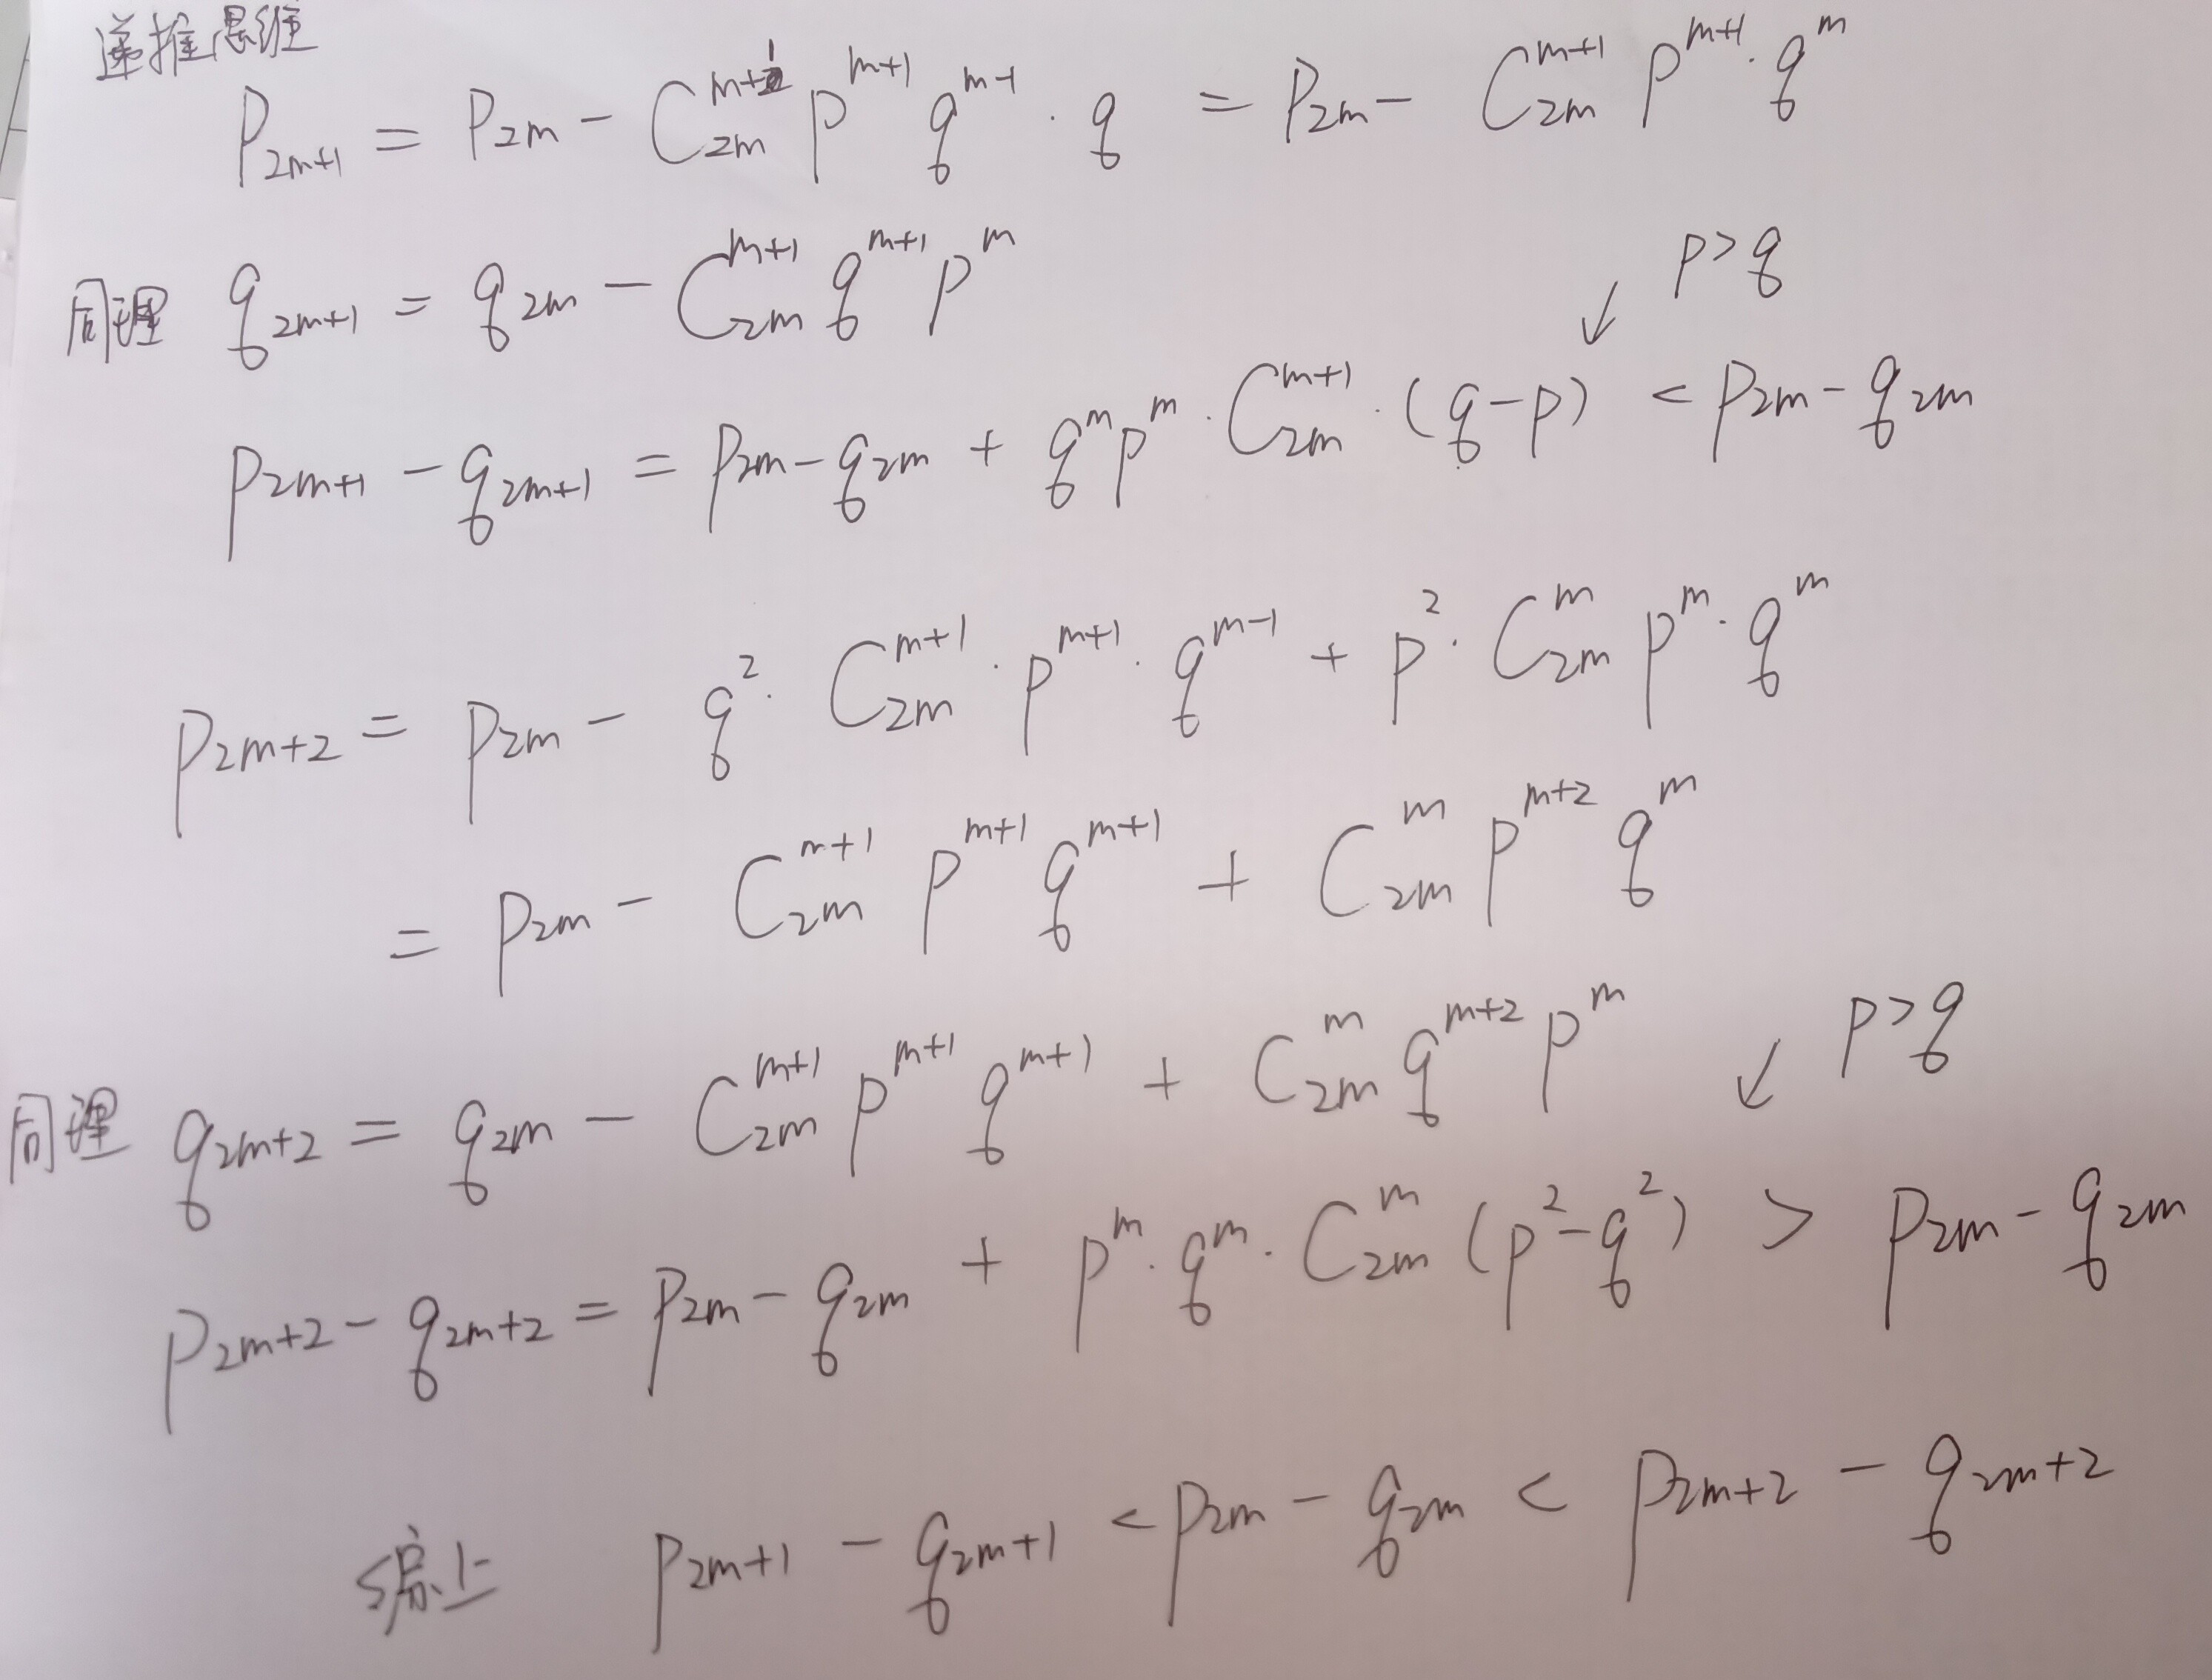 递推思维
P₂ₘ₊₁ = P₂ₘ − C₂ₘ^{m+1} p^{m+1} q^{m-1} · q = P₂ₘ − C₂ₘ^{m+1} p^{m+1} · q^m
同理 q₂ₘ₊₁ = q₂ₘ − C₂ₘ^{m+1} q^{m+1} p^m
p>q
↙
P₂ₘ₊₁ − q₂ₘ₊₁ = P₂ₘ − q₂ₘ + q^m p^m · C₂ₘ^{m+1} · (q−p) < P₂ₘ − q₂ₘ
P₂ₘ₊₂ = P₂ₘ − q² · C₂ₘ^{m+1} · p^{m+1} · q^{m-1} + p² · C₂ₘ^m p^m · q^m
= P₂ₘ − C₂ₘ^{m+1} p^{m+1} q^{m+1} + C₂ₘ^m p^{m+2} q^m
同理 q₂ₘ₊₂ = q₂ₘ − C₂ₘ^{m+1} p^{m+1} q^{m+1} + C₂ₘ^m q^{m+2} p^m
p>q
↙
P₂ₘ₊₂ − q₂ₘ₊₂ = P₂ₘ − q₂ₘ + p^m · q^m · C₂ₘ^m (p²−q²) > P₂ₘ − q₂ₘ
综上 P₂ₘ₊₁ − q₂ₘ₊₁ < P₂ₘ − q₂ₘ < P₂ₘ₊₂ − q₂ₘ₊₂